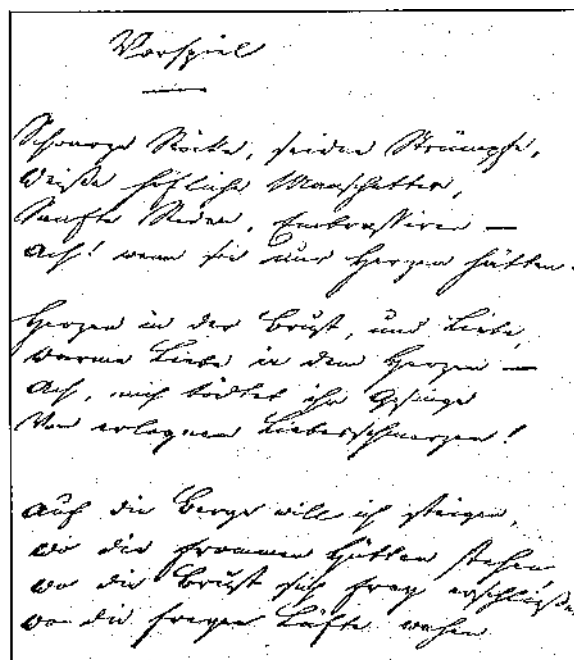 Vorspiel
Schwarze Röcke, seidne Strümpfe,
Weiße höfliche Manschetten,
Sanfte Reden, Embrassiren —
Ach! wenn sie nur Herzen hätten.
Herzen in der Brust, und Liebe,
Warme Liebe in dem Herzen —
Ach, mich tödtet ihr Gesinge
Von erlognen Liebesschmerzen!
Auf die Berge will ich steigen,
Wo die frommen Hütten stehen,
Wo die Brust sich frey erschließet
Wo die freyen Lüfte wehen